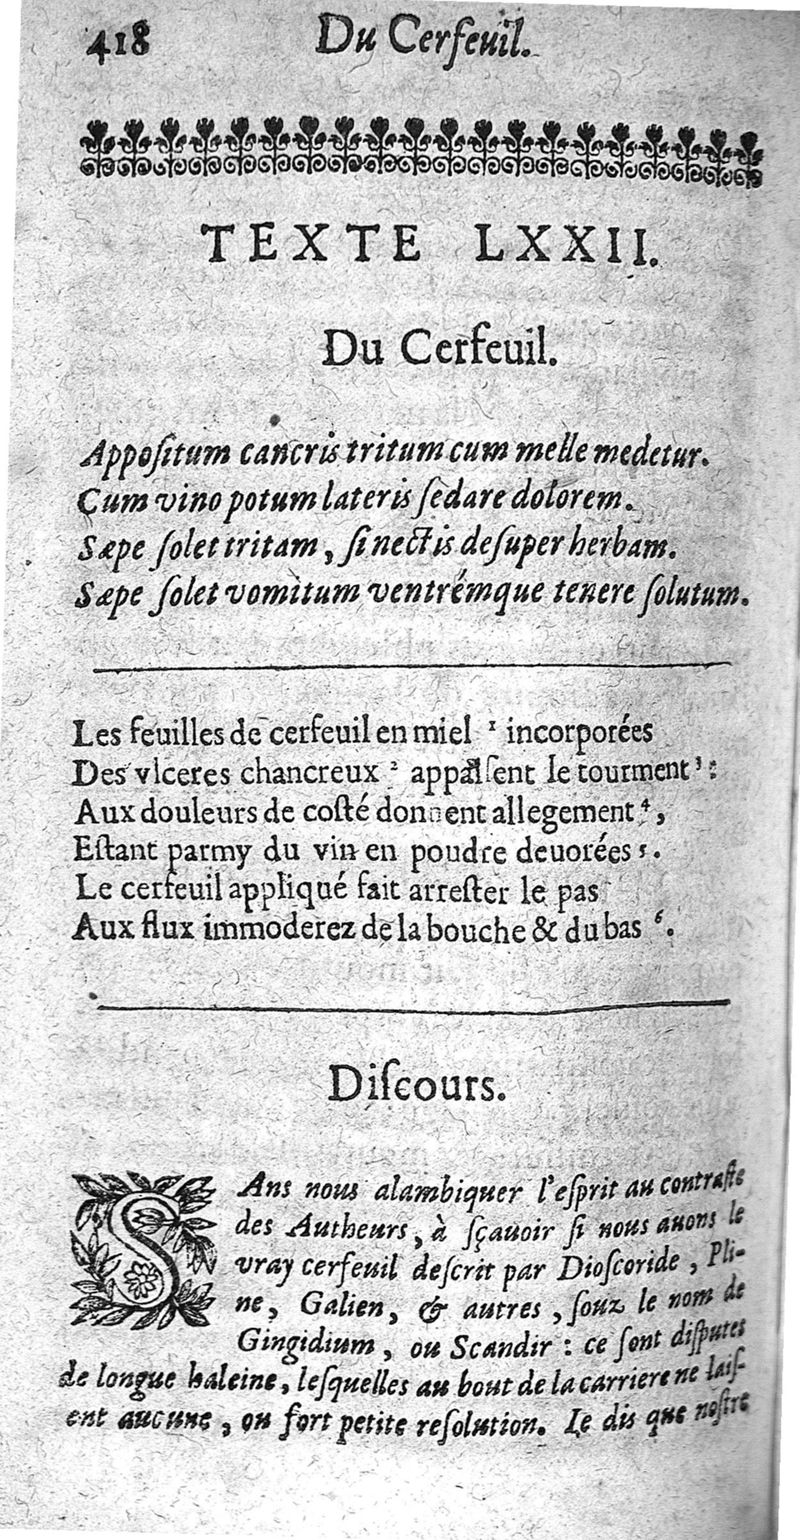 418 Du Cerfeuil.
TEXTE LXXII.
Du Cerfeuil.
Appoſitum cancris tritum cum melle medetur.
Cum vino potum lateris ſedare dolorem.
Sæpe ſolet tritam, ſi nectis deſuper herbam.
Sæpe ſolet vomitum ventrémque tenere ſolutum.
Les feuilles de cerfeuil en miel ¹ incorporées
Des vlceres chancreux ² appaiſent le tourment ³ :
Aux douleurs de coſté donnent allegement ⁴,
Eſtant parmy du vin en poudre deuorées ⁵.
Le cerfeuil appliqué fait arreſter le pas
Aux flux immoderez de la bouche & du bas ⁶.
Diſcours.
SAns nous alambiquer l'eſprit au contraſte
des Autheurs, à ſçauoir ſi nous auons le
vray cerfeuil deſcrit par Dioſcoride, Pli-
ne, Galien, & autres, ſouz le nom de
Gingidium, ou Scandir : ce ſont diſputes
de longue haleine, leſquelles au bout de la carriere ne laiſ-
ent aucune, ou fort petite reſolution. Ie dis que noſtre